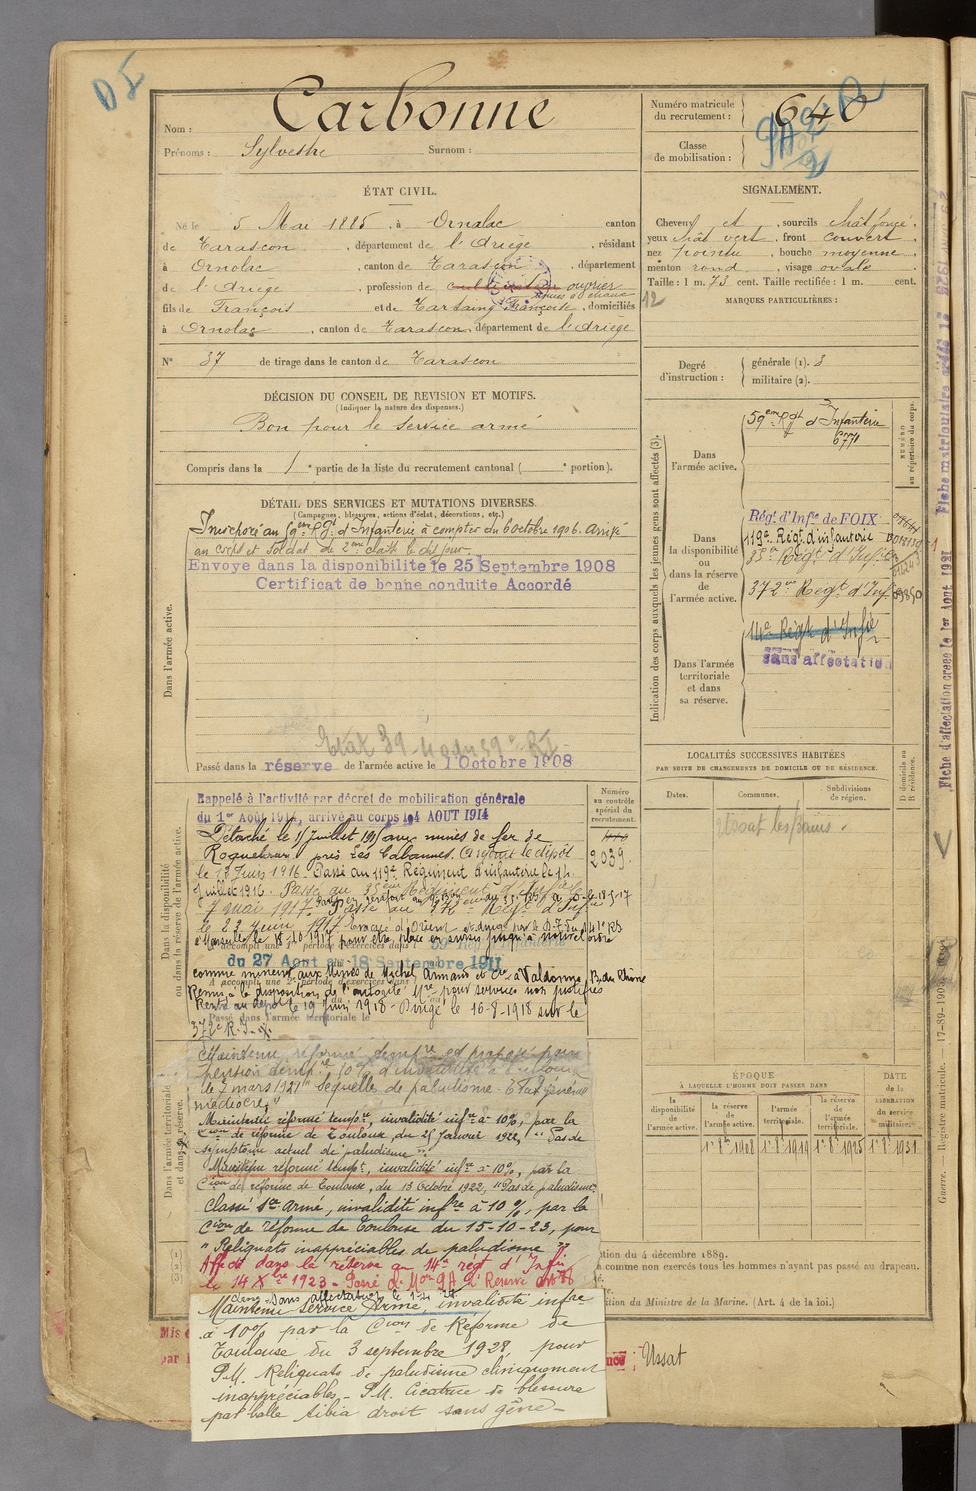 Nom : Carbonne
Prénoms : Sylvestre Surnom :
Numéro matricule du recrutement : 640
Classe de mobilisation :
ÉTAT CIVIL.
Né le 5 Mai 1885, à Ornolac canton
de Tarascon, département de l'Ariège, résidant
à Ornolac, canton de Tarascon, département
de l'Ariège, profession de cultivateur ouvrier
fils de François et de Tartaing Françoise, domiciliés
à Ornolac, canton de Tarascon, département de l'Ariège
N° 37 de tirage dans le canton de Tarascon
SIGNALEMENT.
Cheveux et , sourcils chât foncé,
yeux chât vert, front couvert,
nez pointu, bouche moyenne,
menton rond, visage ovale
Taille : 1 m. 73 cent. Taille rectifiée : 1 m. cent.
12
MARQUES PARTICULIÈRES :
Degré d'instruction :
générale (1). 3
militaire (2).
DÉCISION DU CONSEIL DE REVISION ET MOTIFS.
(Indiquer la nature des dispenses.)
Bon pour le service armé
Compris dans la 1e partie de la liste du recrutement cantonal ( e portion).
DÉTAIL DES SERVICES ET MUTATIONS DIVERSES.
(Campagnes, blessures, actions d'éclat, décorations, etc.)
Dans l'armée active.
Incorporé au 59eme Rgt d'Infanterie à compter du 6 octobre 1906. Arrivé
au corps et soldat de 2eme classe le dit jour.
Envoye dans la disponibilite le 25 Septembre 1908
Certificat de bonne conduite Accordé
Passé dans la réserve de l'armée active le 1 Octobre 1908
Indication des corps auxquels les jeunes gens sont affectés (3).
NUMÉRO au répertoire du corps.
Dans l'armée active.
59eme Rgt d'Infanterie
Dans la disponibilité ou dans la réserve de l'armée active.
Régt d'Infie de FOIX
119e Régt d'infanterie
35e Régt d'Infie
372e Régt d'Inf.
Dans l'armée territoriale et dans sa réserve.
14e Régt d'Infie
sans affectation
LOCALITÉS SUCCESSIVES HABITÉES
PAR SUITE DE CHANGEMENTS DE DOMICILE OU DE RÉSIDENCE.
Dates. Communes. Subdivisions de région.
D domicile ou R résidence.
Ussat les bains.
Dans la disponibilité ou dans la réserve de l'armée active.
Numéro au contrôle spécial du recrutement.
2039.
Rappelé à l'activité par décret de mobilisation générale
du 1er Août 1914, arrivé au corps le 4 AOUT 1914
Détaché le 15 juillet 1915 aux mines de fer de
Roquebrune près Les Cabannes.
le 13 Juin 1916. Passé au 119e Régiment d'infanterie le 14
Juillet 1916. Passé au 35eme Régiment d'Infie le
7 mai 1917. Passé au 372e Régt d'Infie
le 22 Juin 1917.
A accompli une 1e période d'exercices dans
du 27 Aout au 18 Septembre 1911
comme mineur aux Mines de Michel Armand et Cie à Valdonne, B. du Rhône
A accompli une 2e période d'exercices dans
Remis à la disposition de l'autorité Mre pour services non justifiés
Rentré au dépôt le 19 Juin 1918 - Dirigé le 16-8-1918 sur le
372e R.I.
Passé dans l'armée territoriale le
Dans l'armée territoriale et dans sa réserve.
Maintenu réformé tempre et proposé pour
pension tempre 10% d'invalidité
le 7 mars 1921 "Séquelle de paludisme - Etat général
médiocre"
Maintenu réformé tempre, invalidité infre à 10%, par la
Cion de réforme de Toulouse, du 25 Janvier 1922, "Pas de
symptôme actuel de paludisme".
Maintenu réformé tempre, invalidité infre à 10%, par la
Cion de réforme de Toulouse, du 13 Octobre 1922, "Pas de paludisme"
Classé Sce armé, invalidité infre à 10%, par la
Cion de réforme de Toulouse du 15-10-23, pour
"Reliquats inappréciables de paludisme"
Affecté dans la réserve au 14e régt d'Infie
le 14 Xbre 1923
Maintenu Service Armé, invalidité infre
à 10% par la Cion de Réforme de
Toulouse du 3 septembre 1928, pour
P.M. Reliquats de paludisme cliniquement
inappréciables - P.M. Cicatrice de blessure
par balle tibia droit sans gêne -
ÉPOQUE
À LAQUELLE L'HOMME DOIT PASSER DANS
la disponibilité de l'armée active.
la réserve de l'armée active.
l'armée territoriale.
la réserve de l'armée territoriale.
DATE de la LIBÉRATION du service militaire.
1r 8bre 1908 1r 8bre 1919 1r 8bre 1925 1r 8bre 1931
(1)
(2)
(3)
tion du 4 décembre 1889.
à comme non exercés tous les hommes n'ayant pas passé au drapeau.
ition du Ministre de la Marine. (Art. 4 de la loi.)
Ussat
Guerre. — Registre matricule. — 17-89-1905.
Fiche d'affectation créée le 1er Aout 1921